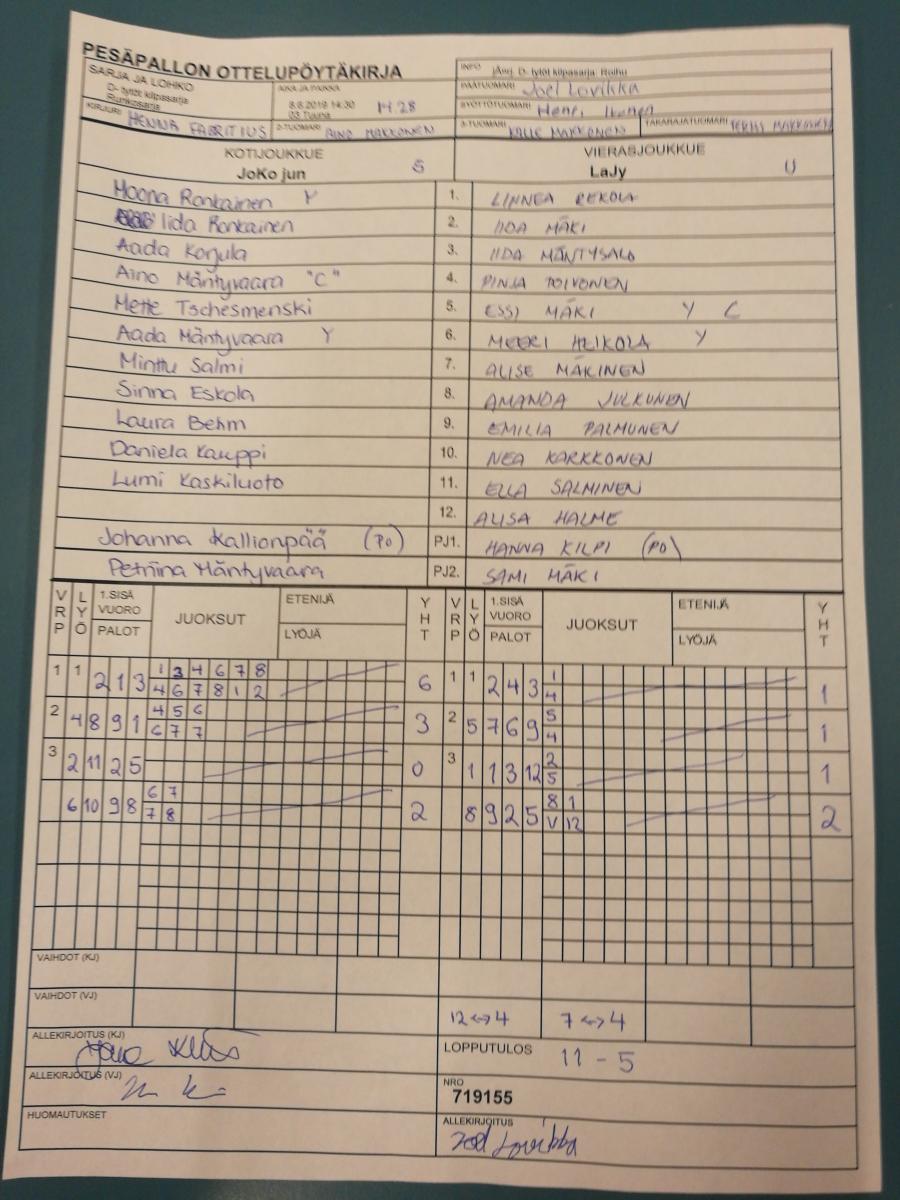 PESÄPALLON OTTELUPÖYTÄKIRJA
SARJA JA LOHKO
D- tytöt kilpasarja
Runkosarja
AIKA JA PAIKKA
8.6.2019 14:30 14 28
INFO D- tytöt kilpasarja: Roihu
PÄÄTUOMARI Joel Lovikka
SYÖTTÖTUOMARI
KIRJURI HENNA FABRITIUS 2-TUOMARI AINO MAKKONEN 3-TUOMARI KALLE MAKKONEN TAKARAJATUOMARI MAKKONEN
KOTIJOUKKUE VIERASJOUKKUE
JoKo jun S LaJy U
Moona Ronkainen Y 1. LINNEA REKOLA
Iida Ronkainen 2. IIDA MÄKI
Aada Korjula 3. IIDA MÄNTYSALO
Aino Mäntyvaara "C" 4. PINJA TOIVONEN
Mette Tschesmenski 5. ESSI MÄKI Y C
Aada Mäntyvaara Y 6. MEERI HEIKOLA Y
Minttu Salmi 7. ALISE MÄKINEN
Sinna Eskola 8. AMANDA JULKUNEN
Laura Behm 9. EMILIA PALMUNEN
Daniela Kauppi 10. NEA KARKKONEN
Lumi Kaskiluoto 11. ELLA SALMINEN
12. ALISA HALME
Johanna Kallionpää (PO) PJ1. HANNA KILPI (PO)
Petriina Mäntyvaara PJ2. SAMI MÄKI
VRP LYÖ 1.SISÄ VUORO PALOT JUOKSUT ETENIJÄ LYÖJÄ YHT VRP LYÖ 1.SISÄ VUORO PALOT JUOKSUT ETENIJÄ LYÖJÄ YHT
1 1 2 1 3 1 3 4 6 7 8 6 1 1 2 4 3 1 1
4 6 7 8 1 2 4
2 4 8 9 1 4 5 6 3 2 5 7 6 9 5 1
6 7 7 4
3 2 11 2 5 0 3 1 1 3 12 2 1
5
6 10 9 8 6 7 2 8 9 2 5 8 1 2
7 8 V 12
VAIHDOT (KJ)
VAIHDOT (VJ) 12↔4 7↔4
ALLEKIRJOITUS (KJ) LOPPUTULOS 11 - 5
ALLEKIRJOITUS (VJ) NRO
719155
HUOMAUTUKSET ALLEKIRJOITUS
Joel Lovikka